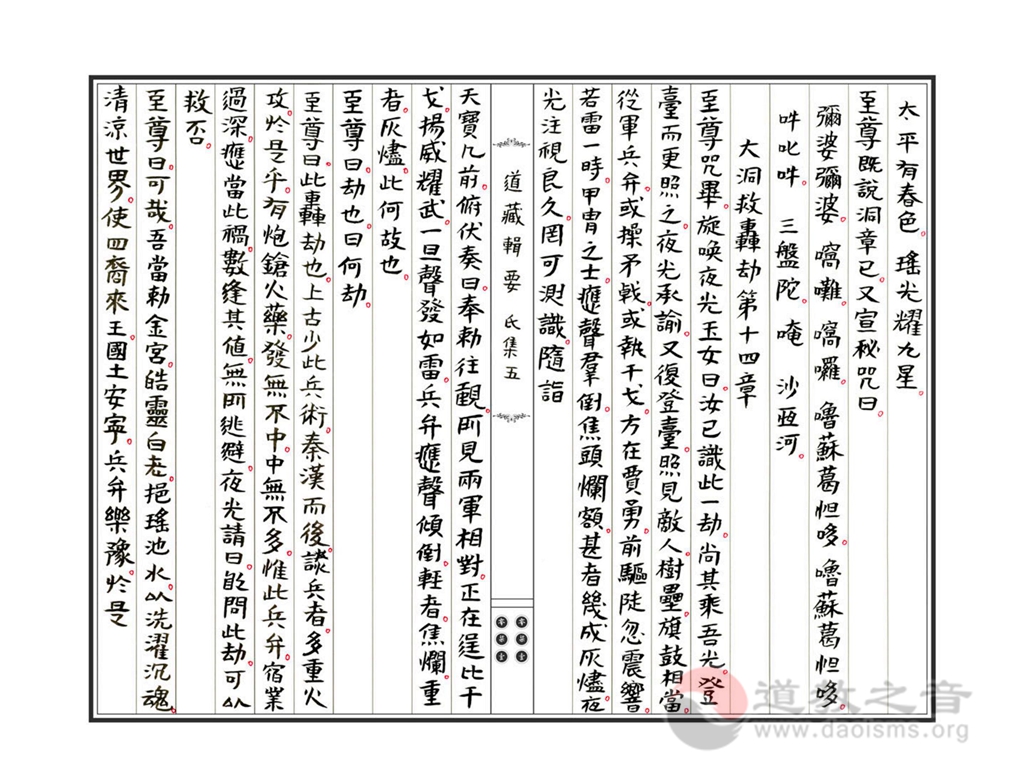 太平有春色。瑤光耀九星。
至尊既說洞章已。又宣秘咒曰。
彌婆彌婆。喎囉。喎囉。嚕蘇葛怛哆。嚕蘇葛怛哆。
吽叱吽 三盤陀。唵 沙亟河。
大洞救轟劫第十四章
至尊咒畢。旋喚夜光玉女曰。汝已識此一劫。尚其乘吾光。登
臺而更照之。夜光承諭。又復登臺。照見敵人。樹壘。旗鼓相當
從軍兵弁。或操矛戟。或執干戈。方在賈勇。前驅陡忽震響。
若雷一時。甲冑之士。應聲羣倒。焦頭爛額。甚者幾成灰燼。夜
光注視良久。罔可測識。隨詣
道藏輯要 氐集五
天寶几前。俯伏奏曰。奉勅往觀。所見兩軍相對。正在逞比干
戈。揚威耀武。一旦聲發如雷。兵弁應聲傾倒。輕者。焦爛。重
者。灰燼。此何故也。
至尊曰。劫也。曰何劫。
至尊曰。此轟劫也。上古少此兵術。秦漢而後。談兵者。多重火
攻。於是乎。有炮鎗火藥。發無不中。中無不多。惟此兵弁。宿業
過深。應當此禍。數逢其値。無所逃避。夜光請曰。敢問此劫。可以
救否。
至尊曰。可哉。吾當勅金宮。皓靈白老。挹瑤池水。以洗濯沉魂。
清涼世界。使四裔來王。國土安寧。兵弁樂豫。於是
道教之音
www.daoisms.org